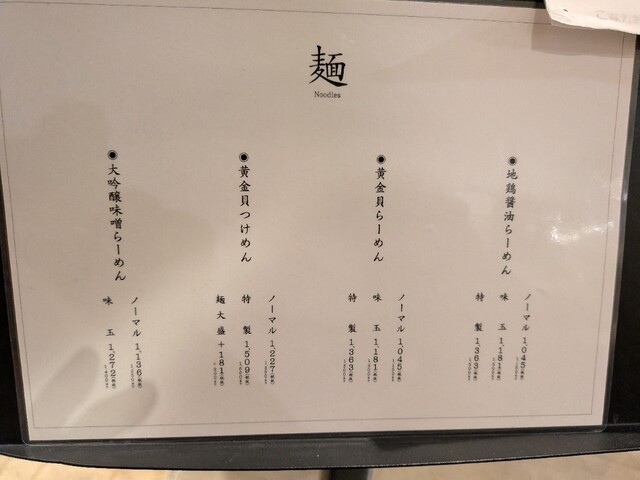 麺
Noodles
◉地鶏醤油らーめん
ノーマル 1,045(税抜)
味玉 1,181(税抜)
特製 1,363(税抜)
◉黄金貝らーめん
ノーマル 1,045(税抜)
味玉 1,181(税抜)
特製 1,363(税抜)
◉黄金貝つけめん
ノーマル 1,227(税抜)
特製 1,509(税抜)
麺大盛 +181(税抜)
◉大吟醸味噌らーめん
ノーマル 1,136(税抜)
味玉 1,272(税抜)